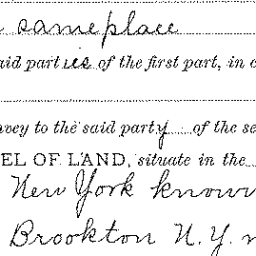 same place
aid parties of the first part, in c
vey to the said party of the se
EL OF LAND, situate in the
New York known
Brookton N.Y.